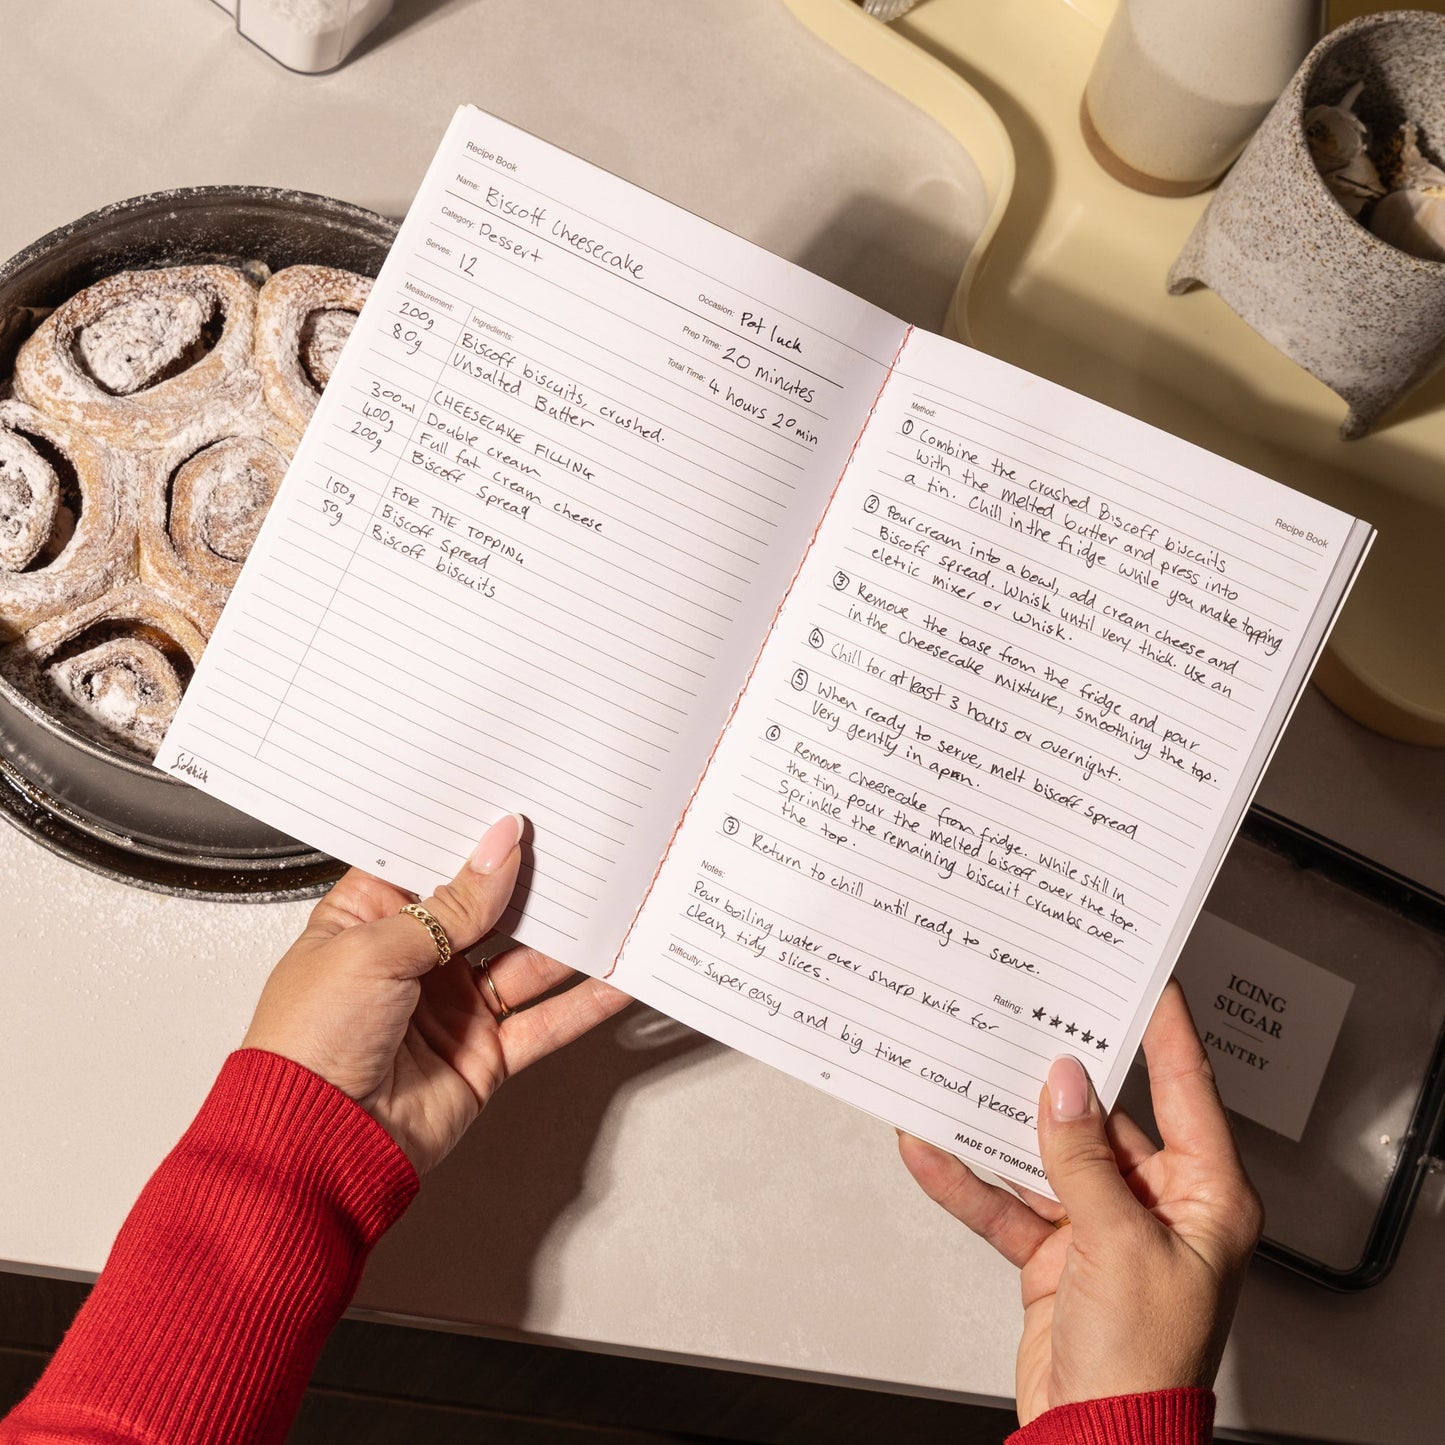 Recipe Book
Name: Biscoff Cheesecake
Category: Dessert
Occasion: Pot luck
Serves: 12
Prep Time: 20 minutes
Total Time: 4 hours 20 min
Measurement: Ingredients:
200g Biscoff biscuits, crushed.
80g Unsalted Butter
CHEESECAKE FILLING
300ml Double cream
400g Full fat cream cheese
200g Biscoff Spread
FOR THE TOPPING
150g Biscoff Spread
50g Biscoff
biscuits
Sidekick
48
Recipe Book
Method:
① Combine the crushed Biscoff biscuits
with the melted butter and press into
a tin. Chill in the fridge while you make topping
② Pour cream into a bowl, add cream cheese and
Biscoff spread. Whisk until very thick. Use an
eletric mixer or whisk.
③ Remove the base from the fridge and pour
in the cheesecake mixture, smoothing the top.
④ Chill for at least 3 hours or overnight.
⑤ When ready to serve, melt biscoff spread
Very gently in a pan.
⑥ Remove cheesecake from fridge. While still in
the tin, pour the melted biscoff over the top.
Sprinkle the remaining biscuit crumbs over
the top.
⑦ Return to chill until ready to serve.
Notes:
Pour boiling water over sharp knife for
clean, tidy slices.
Rating: ★★★★★
Difficulty: Super easy and big time crowd pleaser.
49
MADE OF TOMORROW
ICING
SUGAR
PANTRY